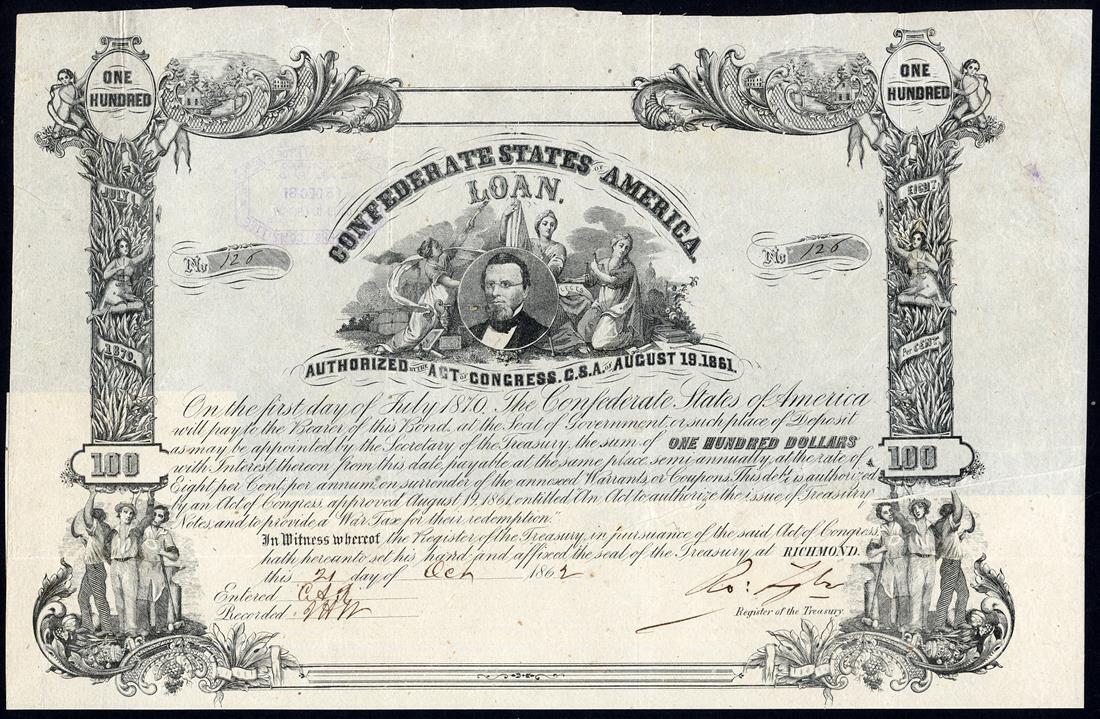 ONE HUNDRED
ONE HUNDRED
CONFEDERATE STATES OF AMERICA.
LOAN.
JULY 1
EIGHT
No 126
No 126
LEGES
1870.
Per CENT.
AUTHORIZED BY THE ACT OF CONGRESS. C.S.A. OF AUGUST 19. 1861.
On the first day of July 1870, The Confederate States of America
will pay to the Bearer of this Bond, at the Seat of Government, or such place of Deposit
as may be appointed by the Secretary of the Treasury, the sum of ONE HUNDRED DOLLARS
with Interest thereon from this date, payable at the same place semi-annually, at the rate of
Eight per Cent, per annum, on surrender of the annexed Warrants, or Coupons. This debt is authorized
by an Act of Congress, approved August, 19, 1861, entitled "An Act to authorize the issue of Treasury
Notes, and to provide a War Tax for their redemption."
100
100
In Witness whereof the Register of the Treasury, in pursuance of the said Act of Congress,
hath hereunto set his hand, and affixed the seal of the Treasury at RICHMOND.
this 21 day of Oct 1862
Entered
Recorded
Ro: Tyler
Register of the Treasury.